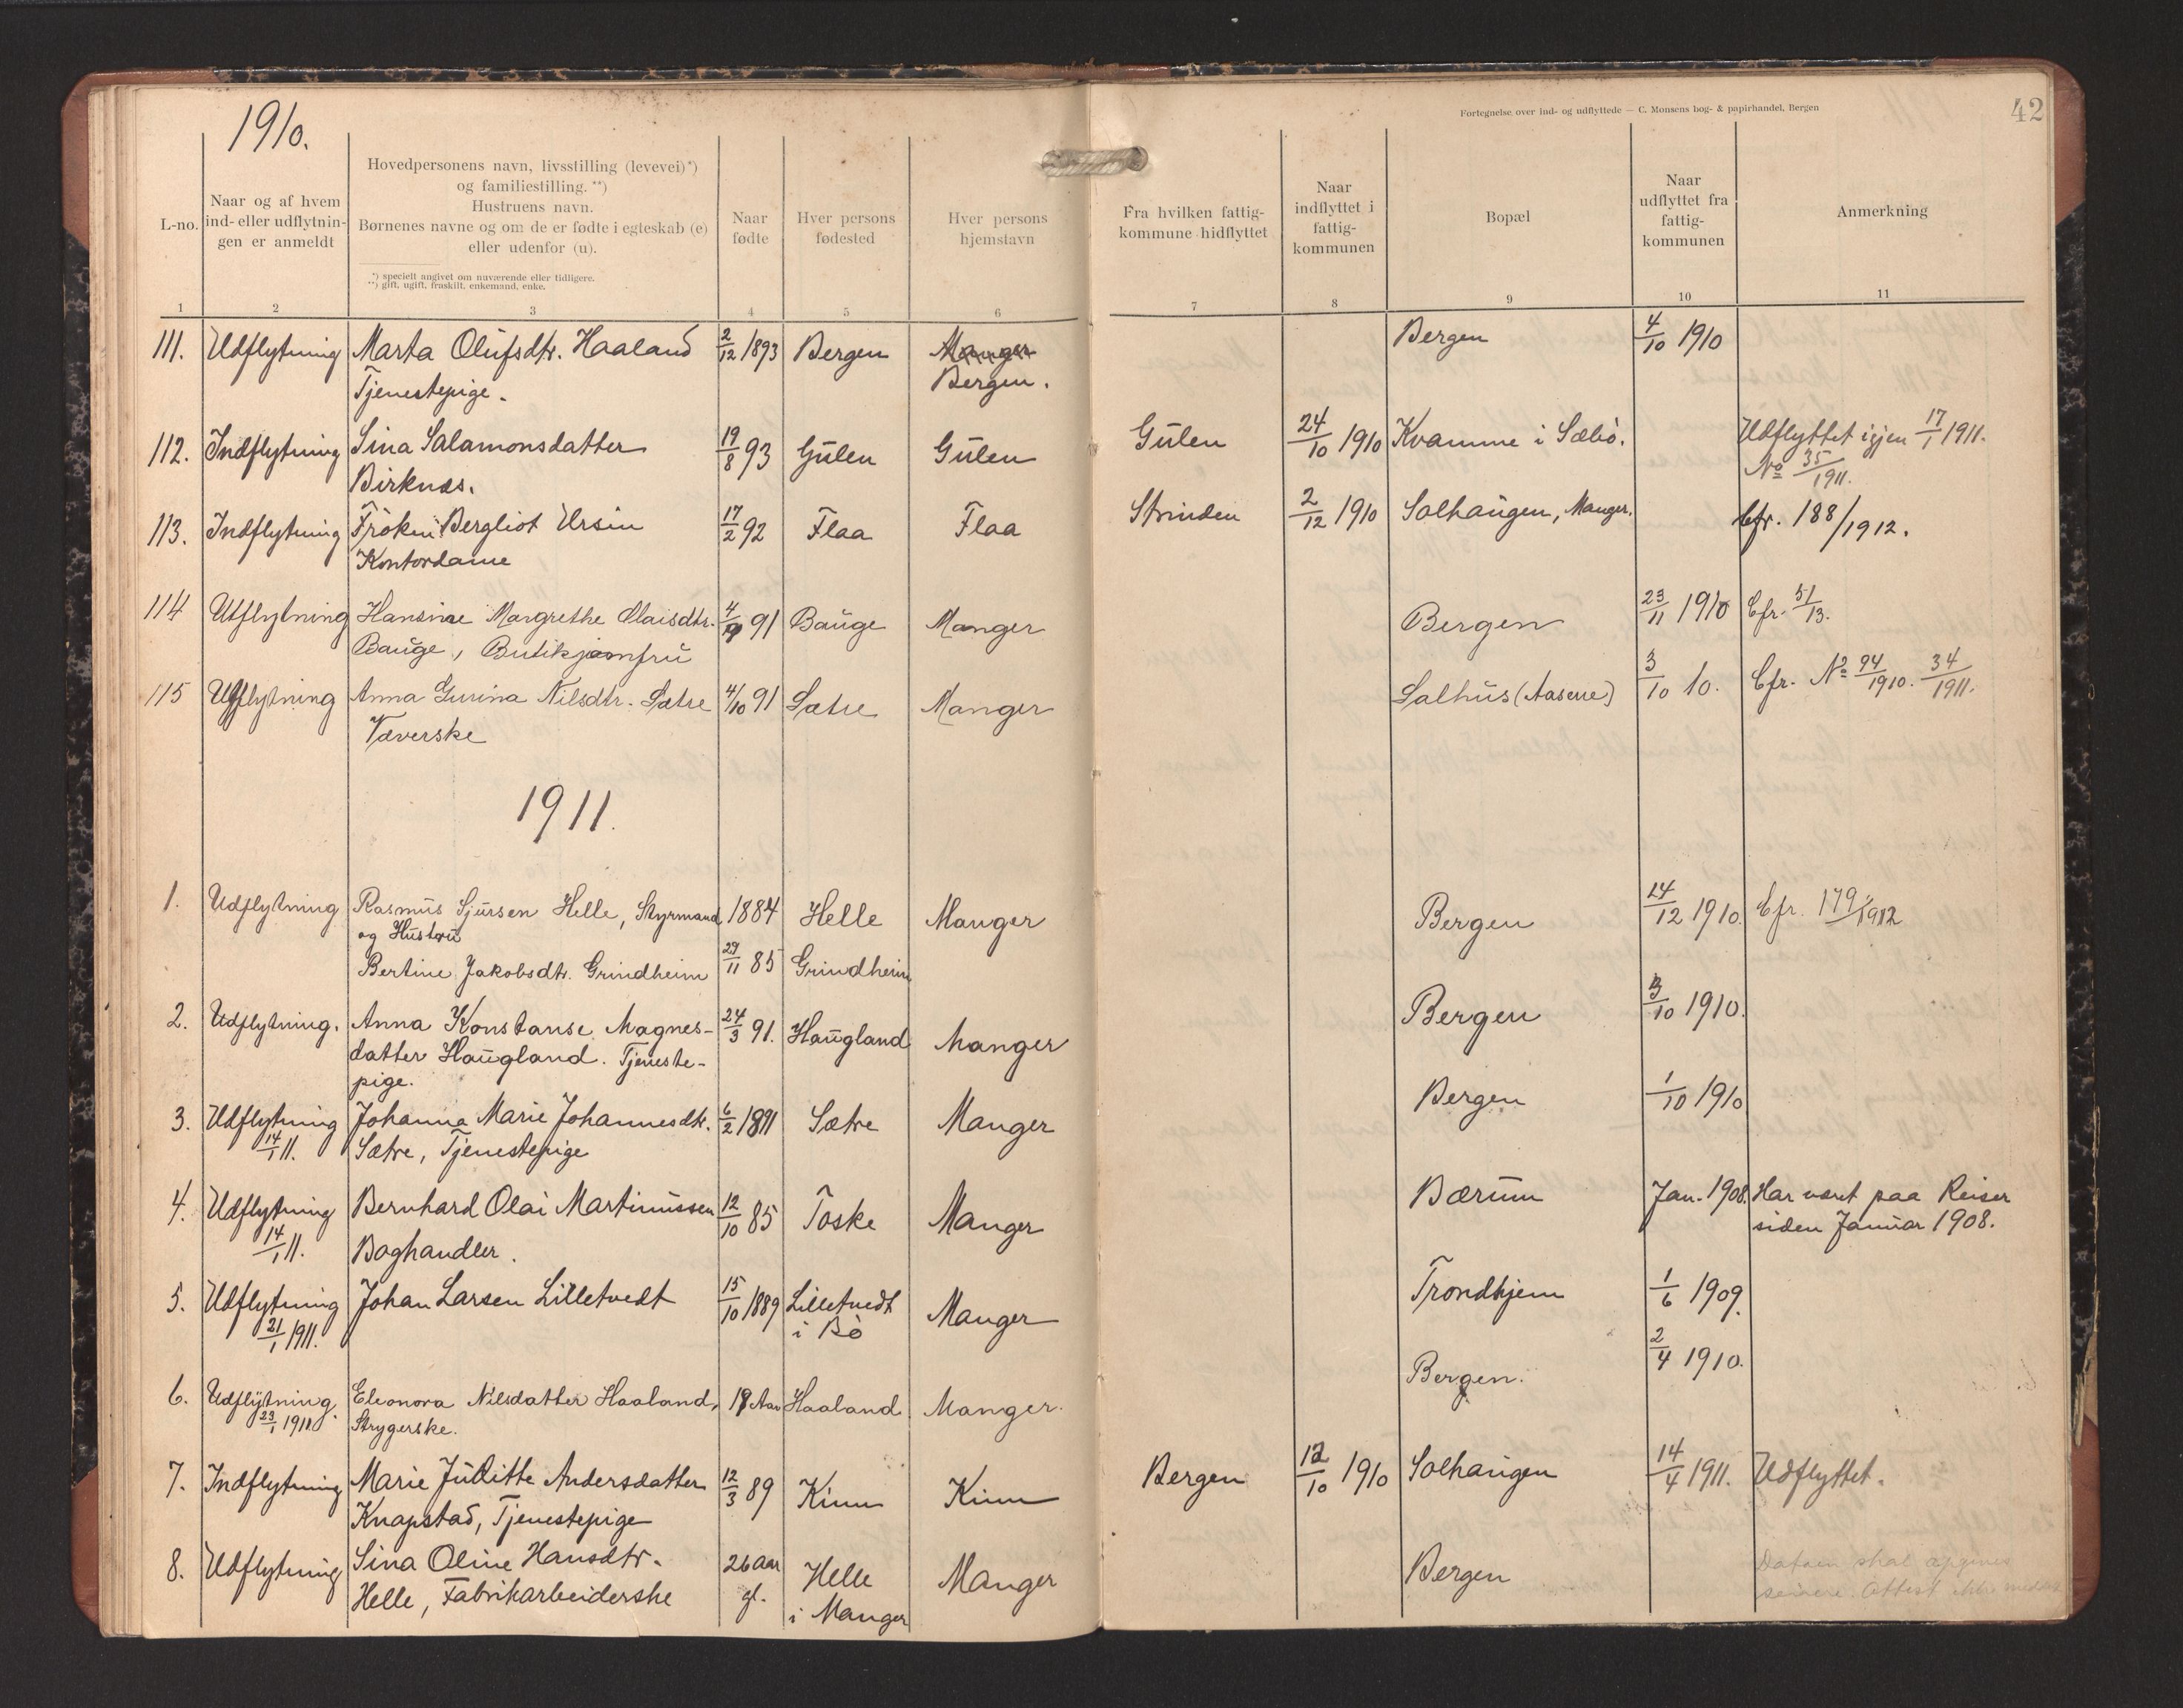 1910.
Fortegnelse over ind- og udflyttede — C. Monsens bog- & papirhandel, Bergen
42
L-no.
Naar og af hvem
ind- eller udflytnin-
gen er anmeldt
Hovedpersonens navn, livsstilling (levevei)*)
og familiestilling. **)
Hustruens navn.
Børnenes navne og om de er fødte i egteskab (e)
eller udenfor (u).
*) specielt angivet om nuværende eller tidligere.
**) gift, ugift, fraskilt, enkemand, enke.
Naar
fødte
Hver persons
fødested
Hver persons
hjemstavn
Fra hvilken fattig-
kommune hidflyttet
Naar
indflyttet i
fattig-
kommunen
Bopæl
Naar
udflyttet fra
fattig-
kommunen
Anmerkning
1 2 3 4 5 6 7 8 9 10 11
111. Udflytning Marta Olufsdtr. Haaland 2/12 1893 Bergen Manger Bergen 4/10 1910
Tjenestepige. Bergen.
112. Indflytning Sina Salamonsdatter 19/8 93 Gulen Gulen Gulen 24/10 1910 Kvamme i Sæbö. Udflyttet igjen 17/1 1911.
Birknes. No 35/1911.
113. Indflytning Fröken Bergliot Ursin 17/2 92 Flaa Flaa Strinden 2/12 1910 Solhaugen, Manger. Cfr. 188/1912.
Kontordame
114 Utflytning Hansine Margrethe Olaisdtr. 4/9 91 Bauge Manger Bergen 23/11 1910 Cfr. 51/13.
Bauge, Butikjomfru
115 Utflytning Anna Gurina Nilsdtr. Sætre 4/10 91 Sætre Manger Salhus (Aasene) 3/10 10. Cfr. No 94/1910. 34/1911.
Væverske
1911.
1. Udflytning Rasmus Sjursen Helle, Styrmand 1884 Helle Manger Bergen 14/12 1910. Cfr. 179/1912
og Hustru
Bertine Jakobsdtr. Grindheim 29/11 85 Grindheim
2. Udflytning. Anna Konstanse Magnes- 24/3 91. Haugland Manger Bergen 3/10 1910.
datter Haugland. Tjeneste-
pige.
3. Udflytning Johanna Marie Johannesdtr. 6/2 1891 Sætre Manger Bergen 1/10 1910
14/1 11. Sætre, Tjenestepige
4. Udflytning Bernhard Olai Martinussen 12/10 85 Toske Manger Bærum Jan. 1908. Har været paa Reiser
14/1 11. Boghandler. siden Januar 1908.
5. Udflytning Johan Larsen Lilletvedt 15/10 1889 Lilletvedt Manger Trondhjem 1/6 1909.
21/1 1911. i Bö
6. Udflytning. Eleonora Nilsdatter Haaland, Aar Haaland Manger. Bergen. 2/4 1910.
23/1 1911. Strygerske.
7. Indflytning Marie Juditte Andersdatter 12/3 89 Kinn Kinn Bergen 12/10 1910 Solhaugen 14/4 1911. Udflyttet.
Knapstad, Tjenestepige
8. Udflytning Sina Oline Hansdtr. 26 aar Helle Manger Bergen
Helle, Fabrikarbeiderske gl. i Manger